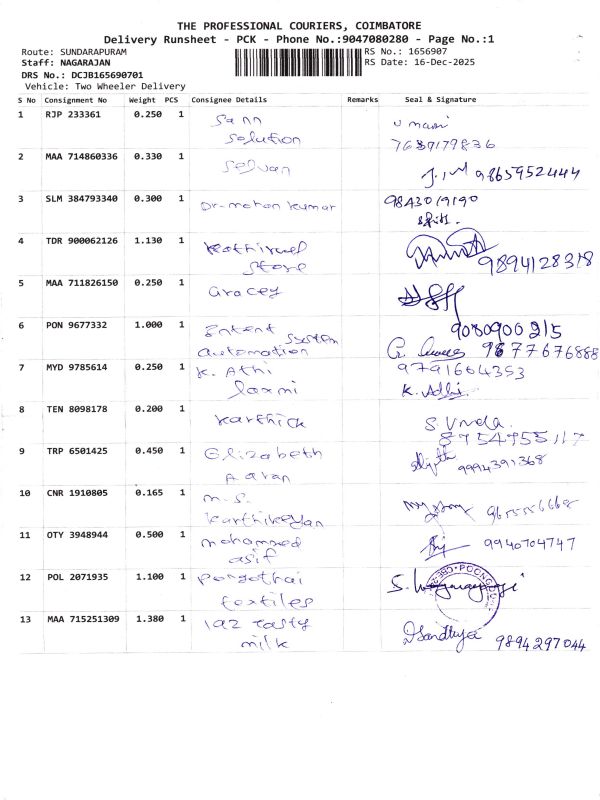 THE PROFESSIONAL COURIERS, COIMBATORE
Delivery Runsheet - PCK - Phone No.:9047080280 - Page No.:1
Route: SUNDARAPURAM RS No.: 1656907
Staff: NAGARAJAN RS Date: 16-Dec-2025
DRS No.: DCJB165690701
Vehicle: Two Wheeler Delivery
S No Consignment No Weight PCS Consignee Details Remarks Seal & Signature
1 RJP 233361 0.250 1 Sann
solution
7639179836
2 MAA 714860336 0.330 1 Selvan
9865952444
3 SLM 384793340 0.300 1 Dr-mohan kumar 9843019190
4 TDR 900062126 1.130 1 Kathirvel
Store 9894128318
5 MAA 711826150 0.250 1 Gracey
6 PON 9677332 1.000 1 System 9080900215
automation 9677676888
7 MYD 9785614 0.250 1 K. Athi 9791664353
laxmi K. Adhi
8 TEN 8098178 0.200 1 Karthick
8954955117
9 TRP 6501425 0.450 1 Elizabeth 9994391368
10 CNR 1910805 0.165 1 m.s.
Karthikeyan
11 OTY 3948944 0.500 1 mohammed
asif 9940704747
12 POL 2071935 1.100 1
textiles
13 MAA 715251309 1.380 1 tasty
milk 9894297044